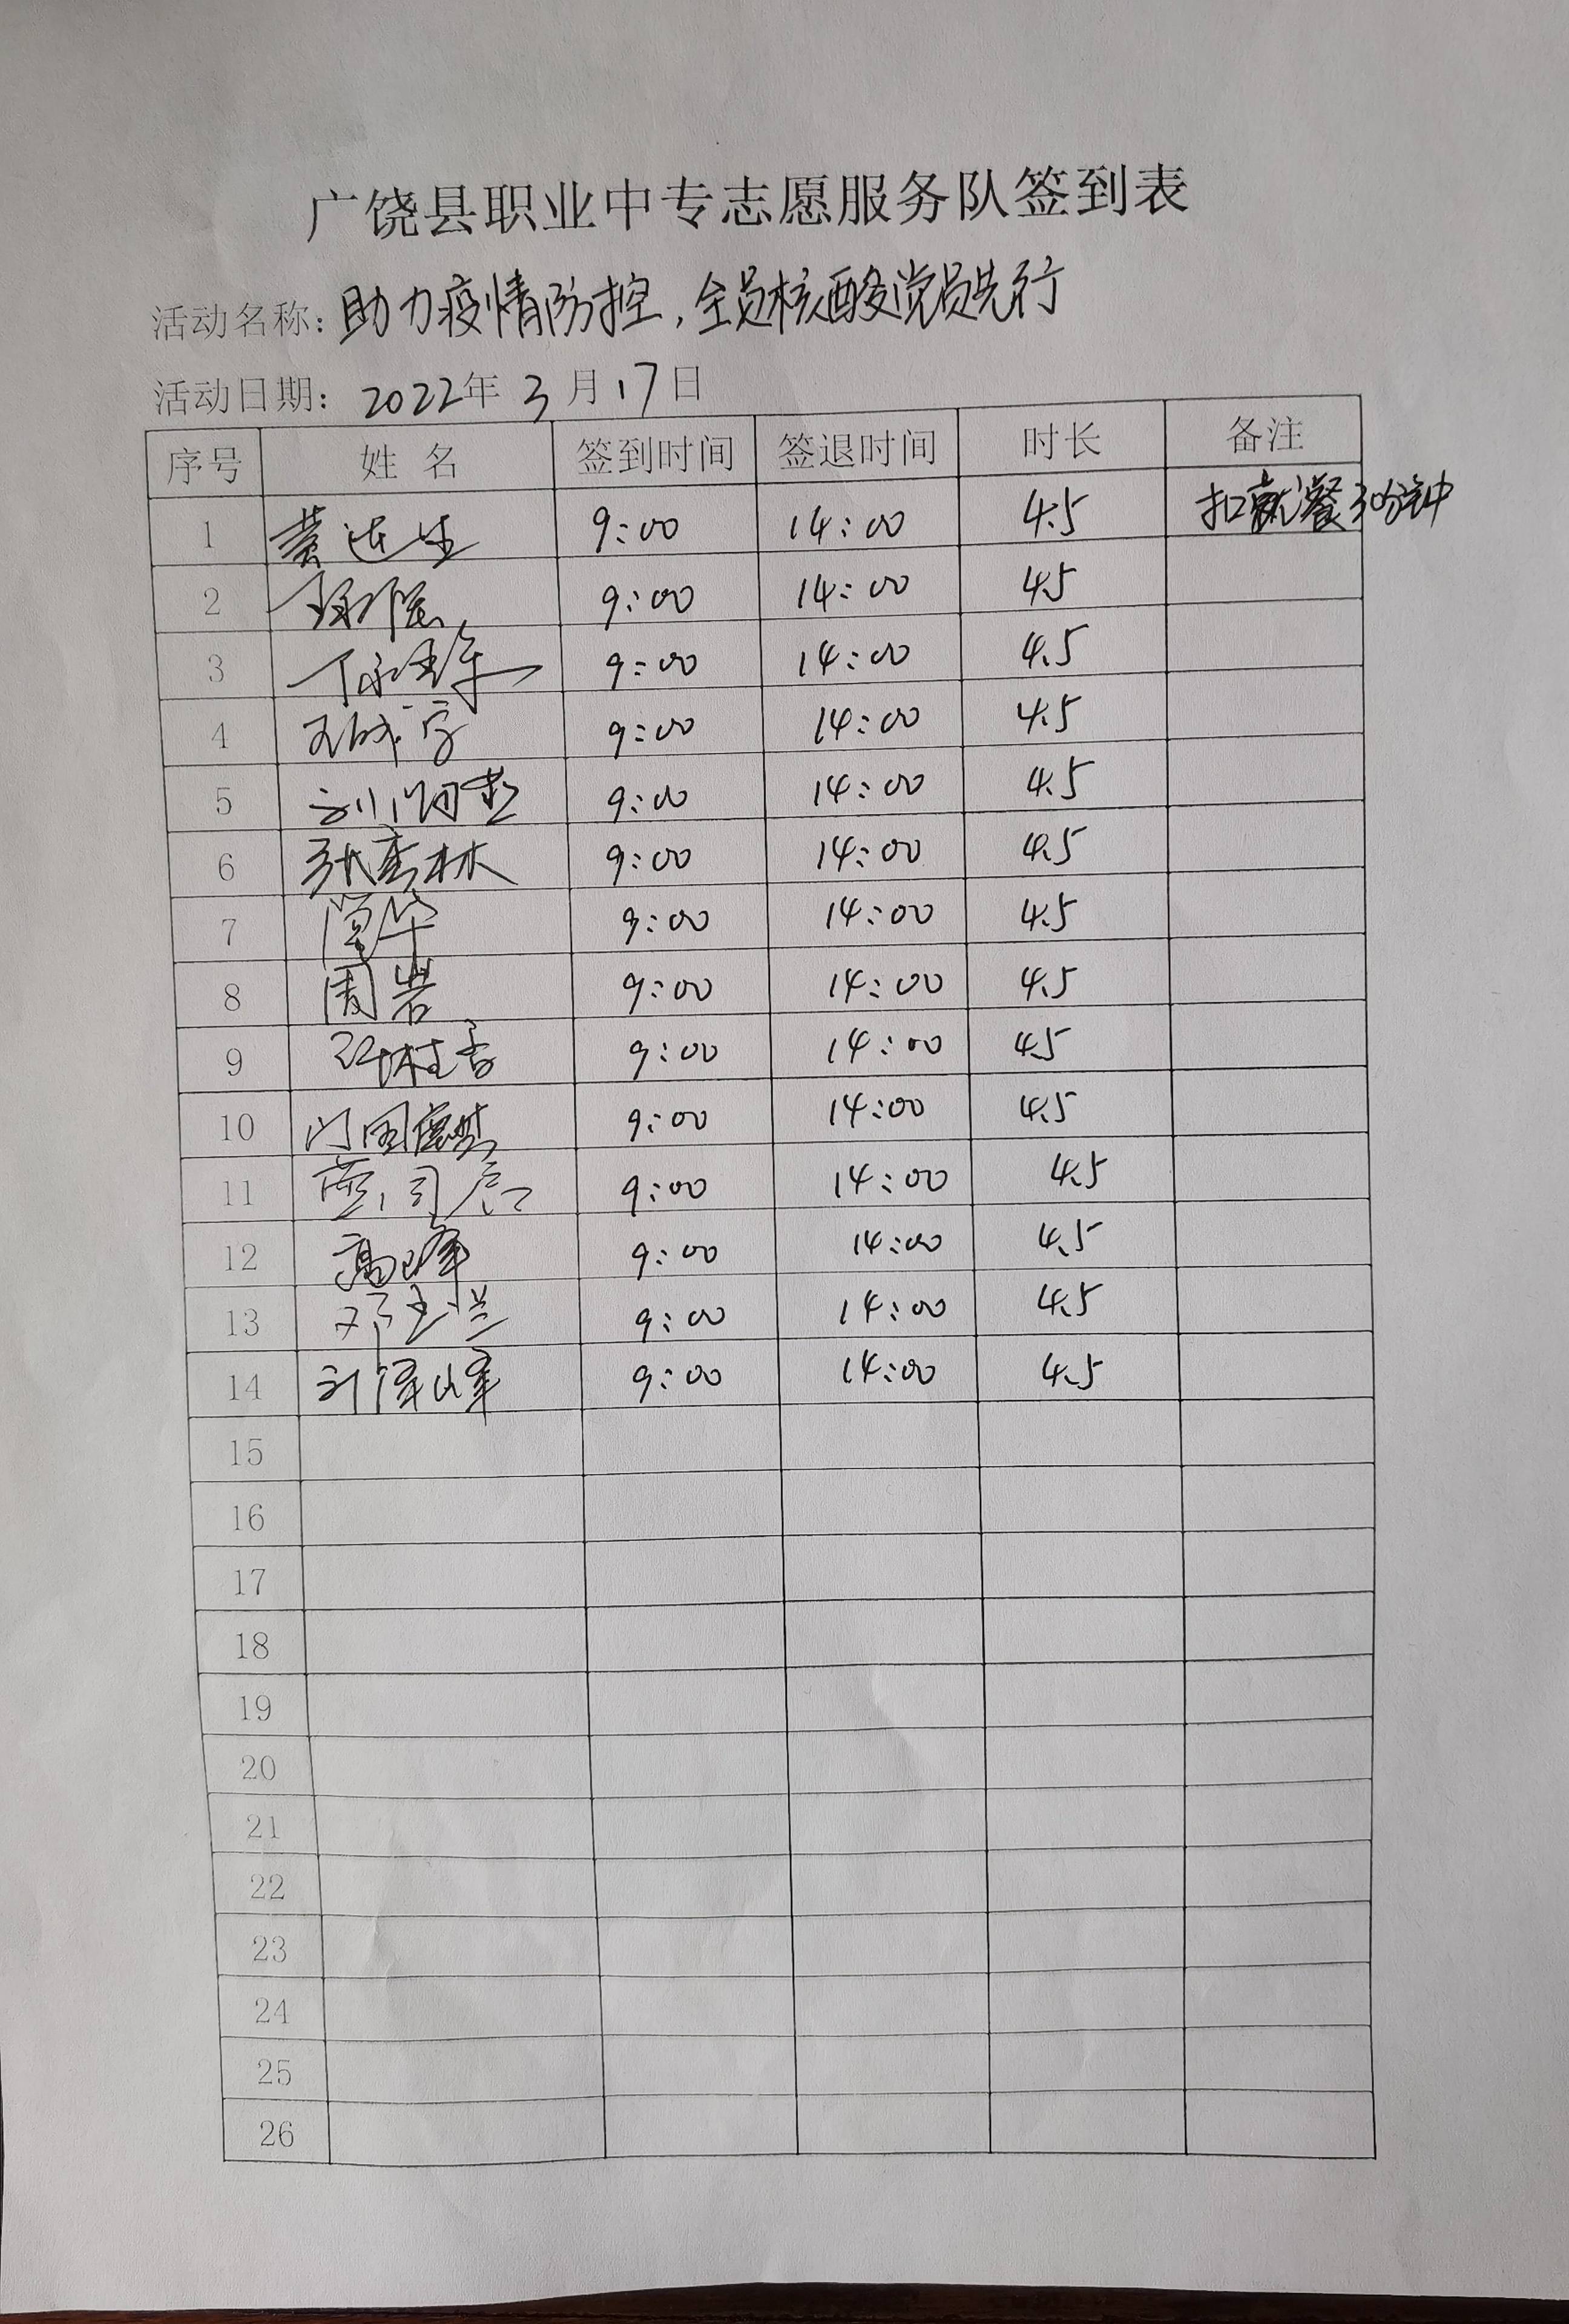 广饶县职业中专志愿服务队签到表
活动名称：助力疫情防控，全员核酸党员先行
活动日期：2022年3月17日
序号 姓名 签到时间 签退时间 时长 备注
1 9:00 14:00 4.5 扣就餐30分钟
2 9:00 14:00 4.5
3 9:00 14:00 4.5
4 9:00 14:00 4.5
5 9:00 14:00 4.5
6 9:00 14:00 4.5
7 9:00 14:00 4.5
8 周岩 9:00 14:00 4.5
9 9:00 14:00 4.5
10 9:00 14:00 4.5
11 9:00 14:00 4.5
12 高峰 9:00 14:00 4.5
13 邓玉兰 9:00 14:00 4.5
14 刘泽峰 9:00 14:00 4.5
15
16
17
18
19
20
21
22
23
24
25
26